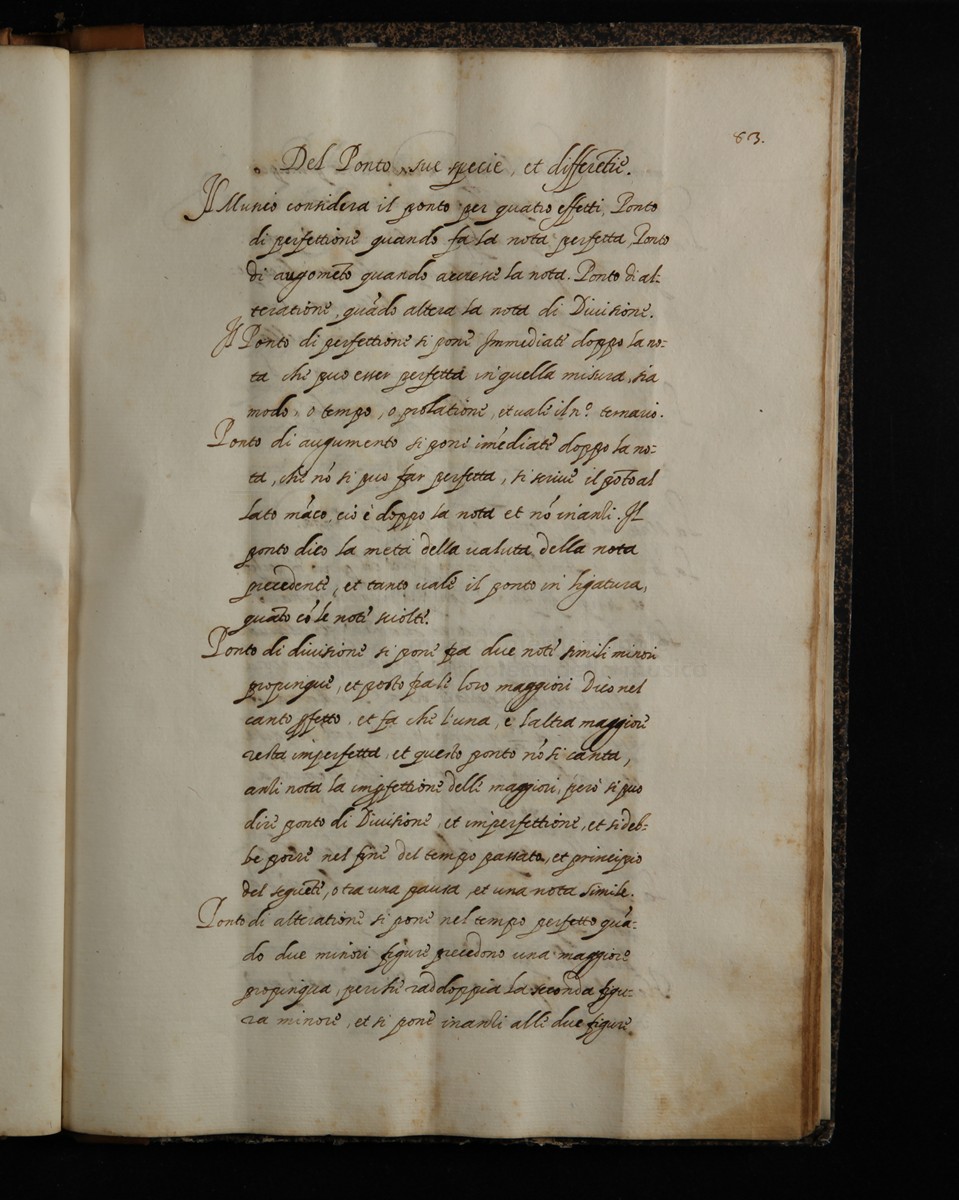 83.
Del Ponto sue specie, et differētie.
Il Musico considera il ponto per quatro effetti, Ponto
di perfettione quando fa la nota perfetta, Pōnto
di augomēto quando accresce la nota. Ponto di al-
teratione, quādo altera la nota di Divisione.
Il Ponto di perfettione si pone Immediate doppo la no-
ta che puo esser perfetta in quella misura, sia
modo, o tempo, o prolatione, et vale il n.o ternario.
Ponto di augumento si pone imediate doppo la no-
ta, che nō si puo far perfetta, si scrive il pōto al
lato māco, cio è doppo la nota et nō inanzi. Il
ponto dico la metà della valuta della nota
precedente, et tanto vale il ponto in ligatura,
quāto cō le note sciolte.
Ponto di divisione si pone fra due note simili minori
propinque, et posto fra le loro maggiori Dico nel
canto pfetto, et fa che l'una, e l'altra maggiore
resta imperfetta, et questo ponto nō si canta,
anzi nota la impfettione delle maggiori, però si puo
dire ponto di Divisione, et imperfettione, et si deb-
be porre nel fine del tempo passato, et principio
del seguēte, o tra una pausa, et una nota simile.
Ponto di alteratione si pone nel tempo perfetto quā-
do due minori figure precedono una maggiore
propinqua, perche raddoppia la seconda figu-
ra minore, et si pone inanzi alle due figure